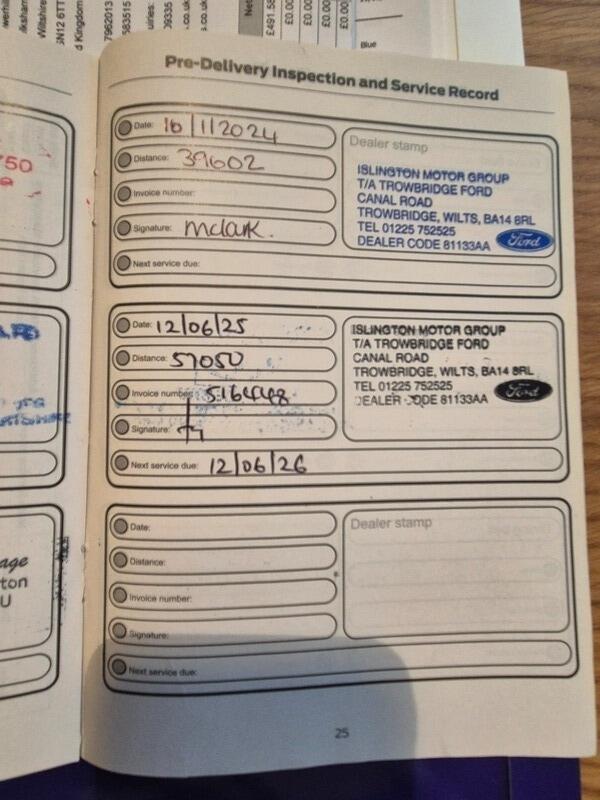 Wiltshire
SN12 6TT
d Kingdom
£491.58
£0.00
£0.00
£0.00
£0.00
Blue
Pre-Delivery Inspection and Service Record
Date: 16/1/2024
Distance: 39602
Invoice number:
Signature: mclark.
Next service due:
Dealer stamp
ISLINGTON MOTOR GROUP
T/A TROWBRIDGE FORD
CANAL ROAD
TROWBRIDGE, WILTS, BA14 8RL
TEL 01225 752525
DEALER CODE 81133AA
Ford
Date: 12/06/25
Distance: 57050
Invoice number:
Signature:
Next service due: 12/06/26
ISLINGTON MOTOR GROUP
T/A TROWBRIDGE FORD
CANAL ROAD
TROWBRIDGE, WILTS, BA14 8RL
TEL 01225 752525
DEALER CODE 81133AA
Ford
Date:
Distance:
Invoice number:
Signature:
Next service due:
Dealer stamp
25